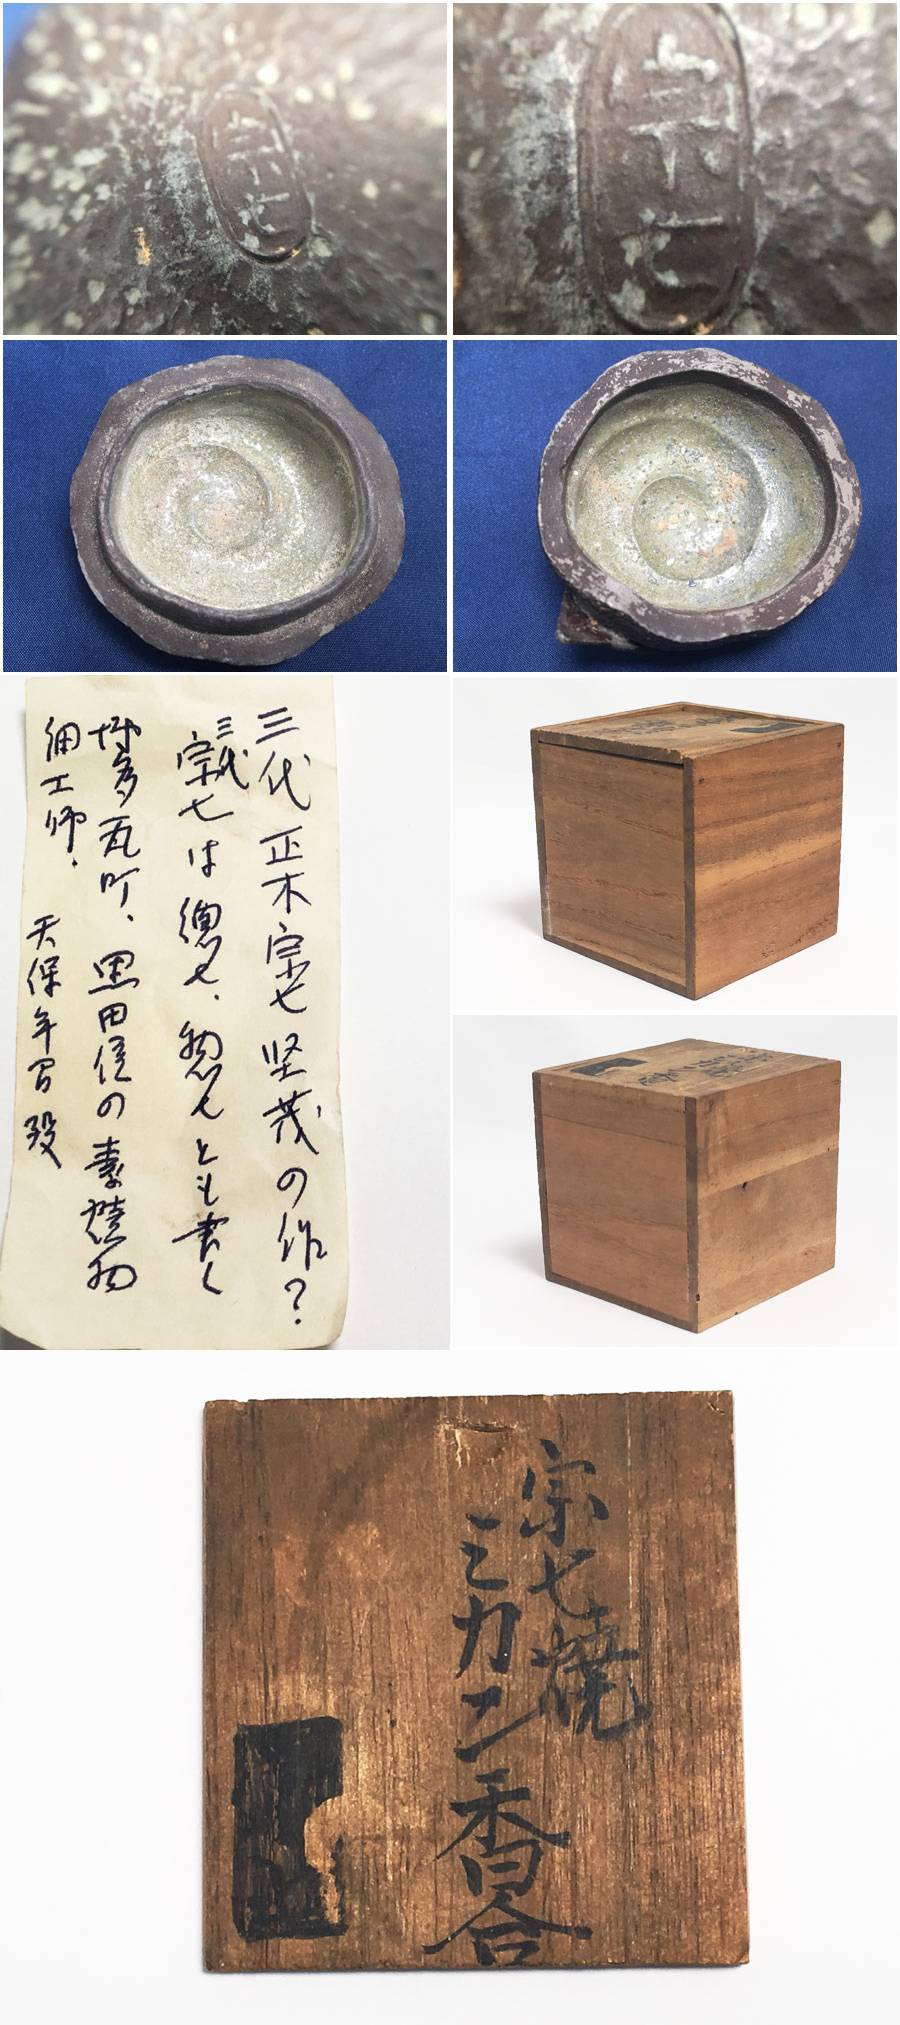 宗七
宗七
三代 正木宗七 堅茂の作?
三代
宗七は 總七、惣七とも書く
博多瓦町、黒田侯の素焼物
細工師. 天保年間 歿
宗七焼
ミカン香合